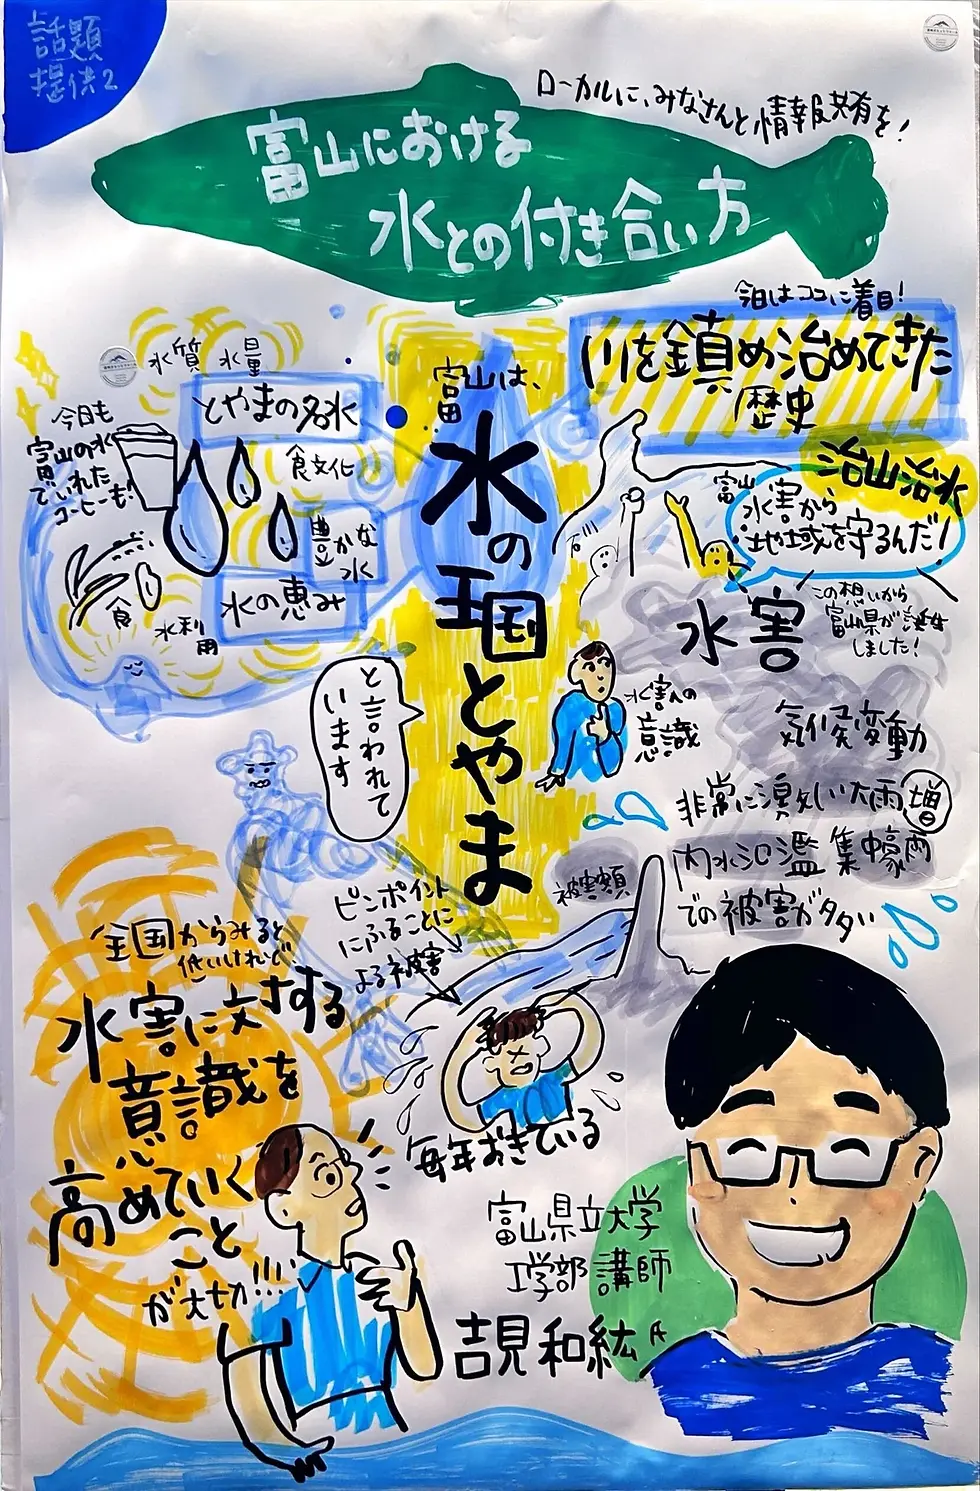 話題
提供2
ローカルに、みなさんと情報共有を!
富山における
水との付き合い方
今日はココに着目!
川を鎮め治めてきた
歴史
治山治水
水質 水量
とやまの名水
今日も
富山の水
でいれた
コーヒーも!
食文化
豊かな
水
水の恵み
食
水利用
富山は、
水の王国とやま
と言われて
います
富山
水害から
地域を守るんだ!
この想いから
富山県が誕生
しました!
水害
水害への
意識
気候変動
非常に激しい大雨 増
内水氾濫 集中豪雨
での被害が多い
被害額
ピンポイント
にふることに
よる被害
毎年おきている
全国からみると
低いけれど
水害に対する
意識を
高めていく
こと
が大切!!!
富山県立大学
工学部 講師
吉見和紘さん